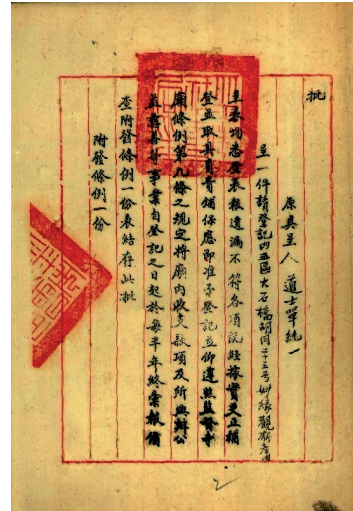 批
原具呈人 道士單統一
呈一件請登記内五區大石橋胡同二十三号妙緣觀廟產由
呈表均悉查表報遺漏不符各項旣經據實更正補
登並取具負責鋪保應即准予登記並仰遵照監督寺
廟條例第九條之規定將廟内收支款項及所興辦公
益慈善等事業自登記之日起於每半年終彙報備
查附發條例一份表結存此批
附發條例一份
2